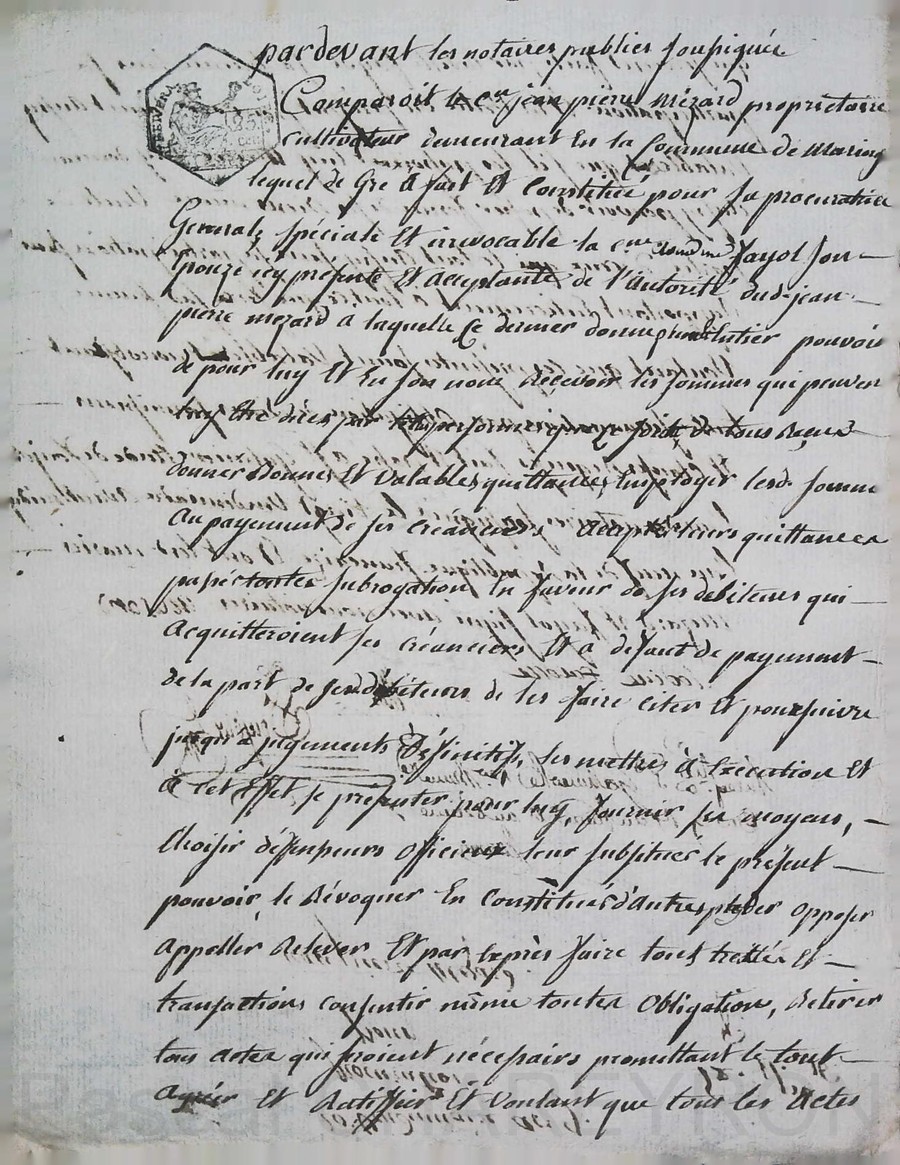 pardevant les notaires publics soussignés
Comparoit le c.en jean pierre mezard proprietaire
cultivateur demeurant En la Commune de
lequel de Gré a fait Et Constitué pour sa procuratrice
Generale, spéciale Et irrevocable la c.enne fayol son
Epouze icy présente Et acceptante de l'autorité dud. jean
pierre mezard a laquelle Ce dernier donne plein Entier pouvoir
de pour luy Et En son nom Recevoir les sommes qui peuvent
luy Etre dües par de tous Reçus
donner Bonnes Et Valables quittances, Employer lesd. somme
Au payement de ses créanciers Accepter leurs quittances
portant subrogation En faveur de ses débiteurs qui
acquitteroient ses créanciers Et a défaut de payement
de la part de sesd. débiteurs de les faire citer Et poursuivre
jusqu'à jugements Définitifs, les mettre à Execution Et
à cet Effet se présenter pour luy, fournir ses moyens,
Choisir défenseurs officieux leur substituer le présent
pouvoir, le Révoquer En Constituer d'autres plaider opposer
appeller Relever Et par Exprès faire tout traités Et
transactions consentir même toutes obligation, Retirer
tous actes qui seroient nécessaires promettant le tout
agréer Et Ratiffier Et Voulant que tous les actes